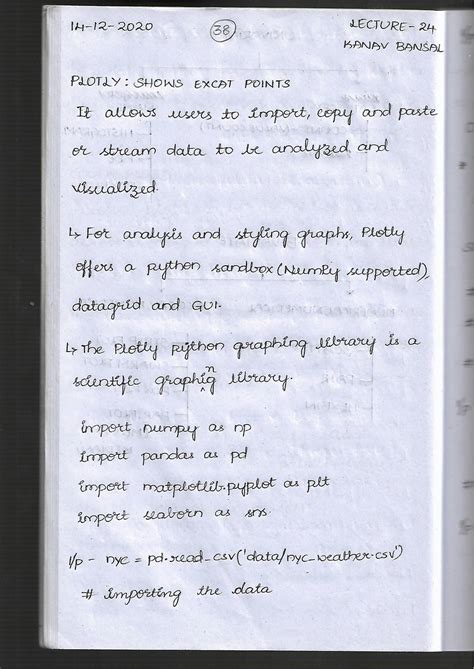 14-12-2020 38 LECTURE-24
KANAV BANSAL
PLOTLY: SHOWS EXCAT POINTS
It allows users to import, copy and paste
or stream data to be analyzed and
visualized.
↳ For analysis and styling graphs, Plotly
offers a python sandbox (NumPy supported),
datagrid and GUI.
↳ The Plotly python graphing library is a
scientific graphing library.
import numpy as np
import pandas as pd
import matplotlib.pyplot as plt
import seaborn as sns
I/p - nyc = pd.read_csv('data/nyc_weather.csv')
# importing the data